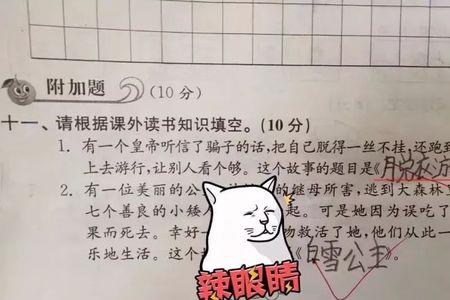 附加题 (10分)
十一、请根据课外读书知识填空。(10分)
1. 有一个皇帝听信了骗子的话,把自己脱得一丝不挂,还跑到
上去游行,让别人看个够。这个故事的题目是《脱衣
2. 有一位美丽的公 的继母所害,逃到大森林
七个善良的小矮人 起。可是她因为误吃了
果而死去。幸好 物救活了她,他们从此一
乐地生活。这个 《白雪公主》。
辣眼睛